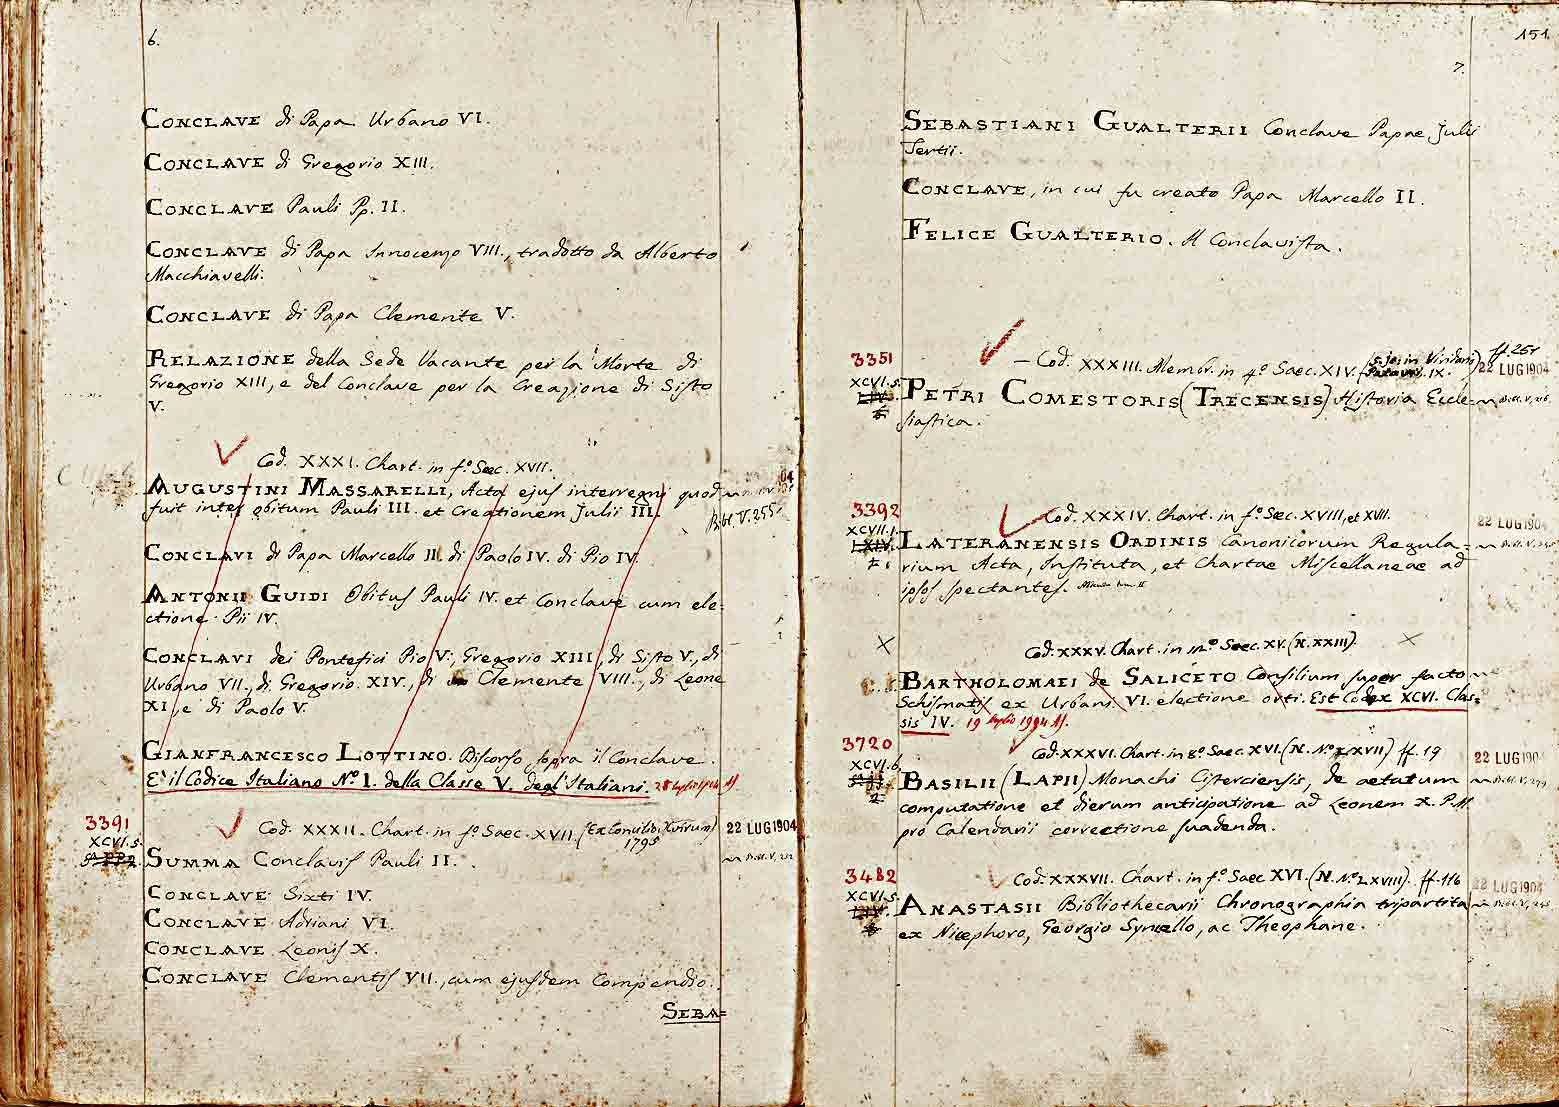 6.
CONCLAVE di Papa Urbano VI.
CONCLAVE di Gregorio XIII.
CONCLAVE Pauli Pp. II.
CONCLAVE di Papa Innocenzo VIII., tradotto da Alberto
Macchiavelli.
CONCLAVE di Papa Clemente V.
RELAZIONE della Sede Vacante per la Morte di
Gregorio XIII, e del Conclave per la Creazione di Sisto
V.
Cod. XXXI. Chart. in fº. Saec. XVII.
AUGUSTINI MASSARELLI, Acta ejus interregni quod
fuit inter obitum Pauli III. et Creationem Julii III.
Bibl. V. 255
CONCLAVI di Papa Marcello II. di Paolo IV. di Pio IV.
ANTONII GUIDI Obitus Pauli IV. et Conclave cum ele=
ctione Pii IV.
CONCLAVI dei Pontefici Pio V., Gregorio XIII, di Sisto V., di
Urbano VII., di Gregorio XIV., di Clemente VIII., di Leone
XI, e di Paolo V.
GIANFRANCESCO LOTTINO. Discorso sopra il Conclave.
E' il Codice Italiano Nº. 1. della Classe V. degl' Italiani.
3391
XCVI.5.
Cod. XXXII. Chart. in fº. Saec. XVII. (Ex Consilio Xvirum)
1795
22 LUG 1904
SUMMA Conclavis Pauli II.
CONCLAVE Sixti IV.
CONCLAVE Adriani VI.
CONCLAVE Leonis X.
CONCLAVE Clementis VII., cum ejusdem Compendio.
SEBA=
151.
7.
SEBASTIANI GUALTERII Conclave Papae Julii
Tertii.
CONCLAVE, in cui fu creato Papa Marcello II.
FELICE GUALTERIO. Il Conclavista.
3351
XCVI.5.
Cod. XXXIII. Membr. in 4º. Saec. XIV. (S. Jo: in Viridario
Patavii. IX.) ff. 251
22 LUG 1904
PETRI COMESTORIS (TRECENSIS) Historia Eccle=
siastica.
3392
XCVII.1.
Cod. XXXIV. Chart. in fº. Saec. XVIII, et XVII.
22 LUG 1904
LATERANENSIS ORDINIS Canonicorum Regula=
rium Acta, Instituta, et Chartae Miscellaneae ad
ipsos spectantes.
Cod. XXXV. Chart. in 12º. Saec. XV. (N. XXIII).
BARTHOLOMAEI de SALICETO Consilium super facto
Schismatis ex Urbani VI. electione orti. Est Codex XCVI. Clas=
sis IV. 19 luglio 1904
3720
XCVI.6.
Cod. XXXVI. Chart. in 8º. Saec. XVI. (N. Nº. LXVII) ff. 19
22 LUG 1904
BASILII (LAPII) Monachi Cisterciensis, de aetatum
computatione et dierum anticipatione ad Leonem X. P.M.
pro Calendarii correctione suadenda.
3482
XCVI.5.
Cod. XXXVII. Chart. in fº. Saec. XVI. (N. Nº. LXVIII). ff. 116
22 LUG 1904
ANASTASII Bibliothecarii Chronographia tripartita
ex Nicephoro, Georgio Syncello, ac Theophane.